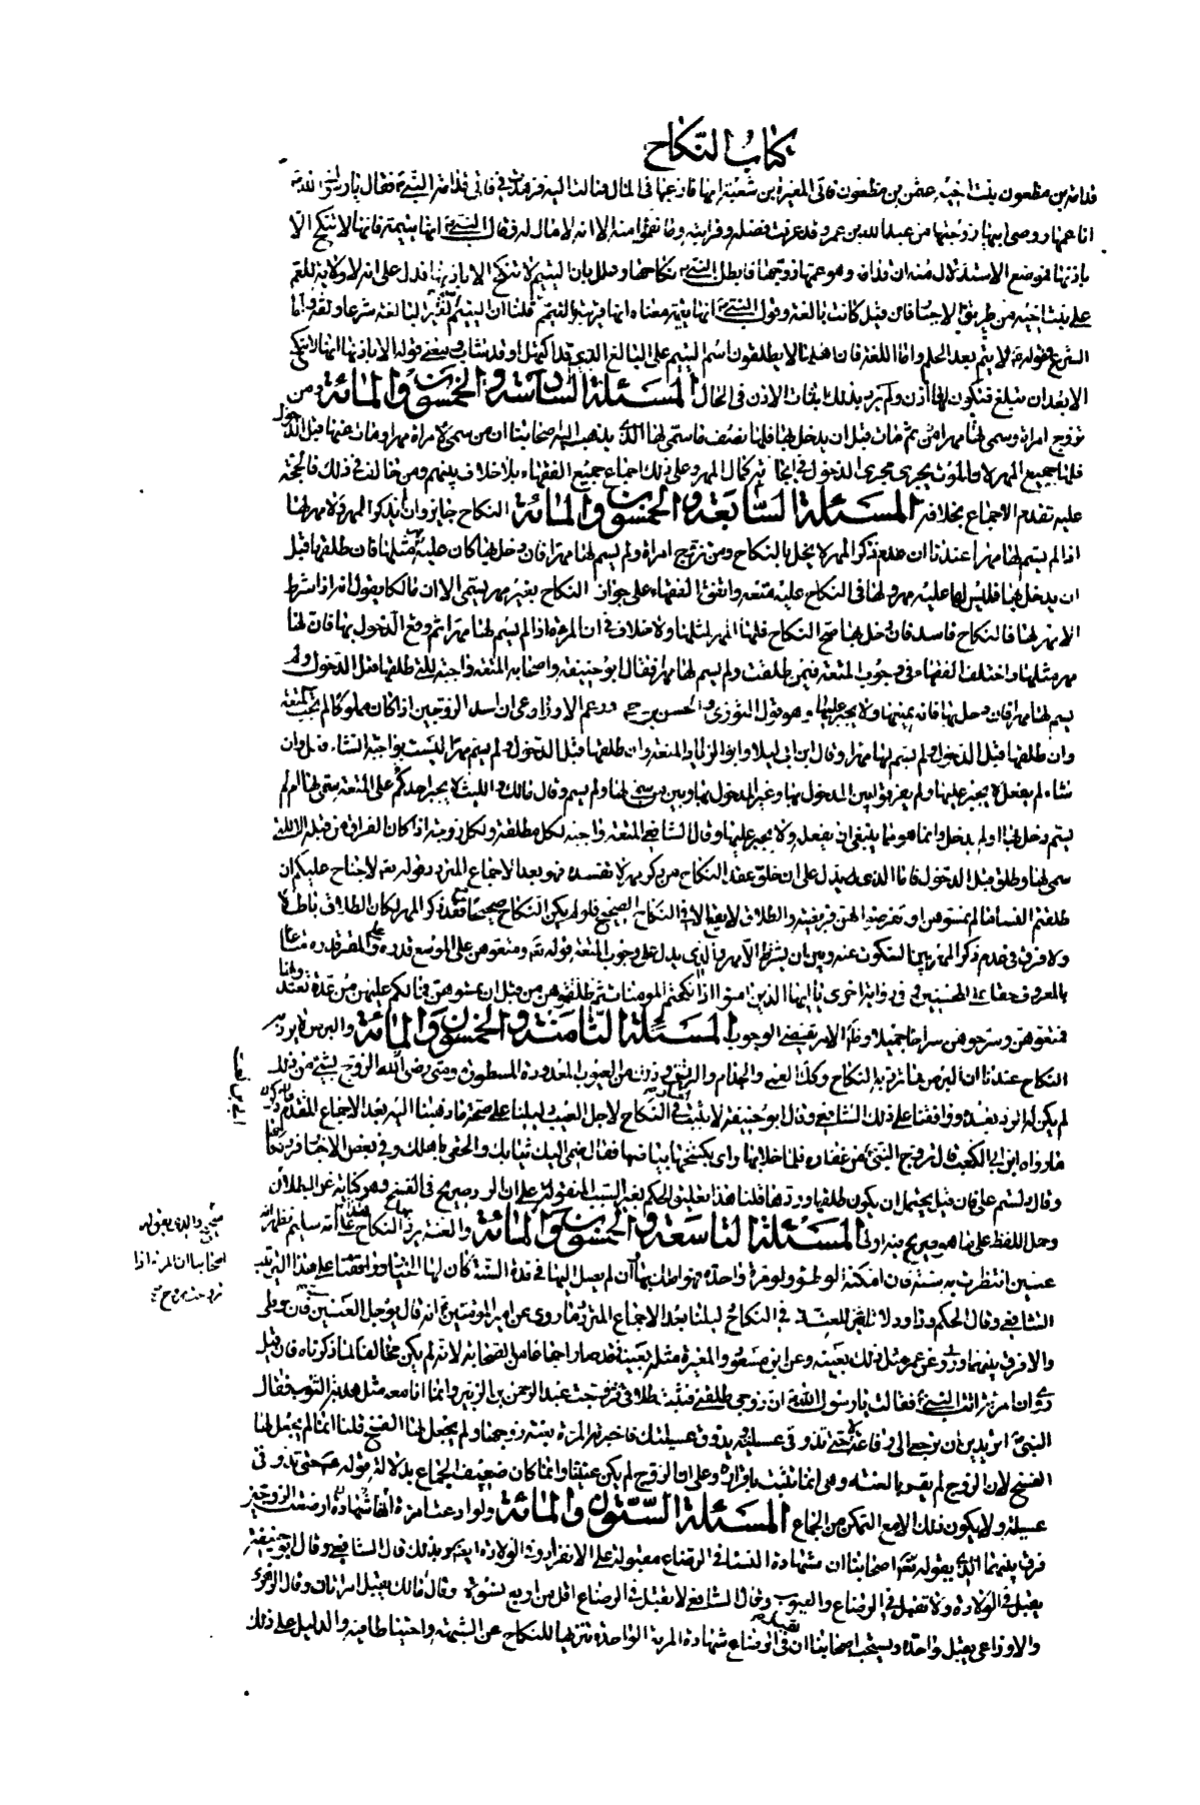 كتاب النكاح
قدامة بن مظعون بنت اخيه عثمن بن مظعون فاتى المغيرة بن شعبة امها فارغبها فى المال فمالت اليه فرغبت فى فاتى قدامة النبي فقال يا رسول الله
انا عمها ووصى ابيها زوجتها من عبد الله بن عمر وقد عرفت فضله وقرابته وما نقموا منه الا انه لا مال له وقال النبي انها يتيمة فانها لا تنكح الا
باذنها فموضع الاستدلال منه ان قدامة وهو عمها زوجها فابطل النبي نكاحها وعلل بان اليتيم لا تنكح الا باذنها فدل على انه لا ولاية للعم
على بنت اخيه من طريق الاجبار فان قيل كانت بالغة وقول النبي انها يتيمة معناه انها قريبة اليتيم قلنا ان اليتيم لغير البالغة شرعا ولغة اما
الشرع فقوله لا يتم بعد الحلم واما اللغة فان اهلها لا يطلقون اسم اليتيم على البالغ الذي قد اكتهل او قد شاب ومعنى قوله الا باذنها انها لا تنكح
الا بعد ان تبلغ فتكون لها اذن ولم يرد بذلك اثبات الاذن فى الحال المسئلة السادسة والخمسون والمائة ومن
تزوج امراة وسمى لها مهرا من ثم مات قبل ان يدخل بها فلها نصف ما سمى لها الذي يذهب اليه اصحابنا ان من سمى لامراة مهرا ومات عنها قبل الدخول
فلها جميع المهر لان الموت يجرى مجرى الدخول فى ايجابه كمال المهر وعلى ذلك اجماع جميع الفقهاء بلا خلاف بينهم ومن خالف فى ذلك فالحجة
عليه تقدم الاجماع بخلافه المسئلة السابعة والخمسون والمائة النكاح جايز وان لم يذكر المهر ولا مهر لها
اذا لم يسم لها مهرا عندنا ان عدم ذكر المهر لا يخل بالنكاح ومن تزوج امراة ولم يسم لها مهرا فان دخل بها كان عليه مهر مثلها فان طلقها قبل
ان يدخل بها فليس لها عليه مهر ولها فى النكاح عليه متعة واتفق الفقهاء على جواز النكاح بغير مهر يسمى الا ان مالكا يقول انه اذا شرط
الا مهر لها فالنكاح فاسد فان دخل بها صح النكاح فلها المهر لمثلها ولا خلاف فى ان المرءة اذا لم يسم لها مهرا ثم وقع الدخول بها فان لها
مهر مثلها واختلف الفقهاء فى وجوب المتعة فيمن طلقت ولم يسم لها مهرا فقال ابو حنيفة واصحابه المتعة واجبة للتي طلقها قبل الدخول ولم
يسم لها مهرا فان دخل بها فانه يمتعها ولا يجبر عليها وهو قول الثوري والحسن بن حي وزعم الاوزاعى ان احد الزوجين اذا كان مملوكا لم تجب المتعة
وان طلقها قبل الدخول ولم يسم لها مهرا وقال ابن ابى ليلا وابو الزناد المتعة وان طلقها قبل الدخول ولم يسم مهرا ليست بواجبة ان شاء فعل وان
شاء لم يفعل لا يجبر عليها ولم يفرقوا بين المدخول بها وغير المدخول بها وبين من سمى لها ولم يسم وقال مالك والليث لا يجبر احدكم على المتعة سمى لها ام لم
يسم دخل بها او لم يدخل وانما هو مما ينبغى ان يفعله ولا يجبر عليها وقال الشافعى المتعة واجبة لكل مطلقة ولكل زوجة اذا كان الفراق من قبله الا التي
سمى لها وطلق قبل الدخول فاما الذى يدل على ان خلو عقد النكاح من ذكر مهر لا تفسده فهو بعد الاجماع المتردد قوله تعم لا جناح عليكم ان
طلقتم النساء ما لم تمسوهن او تفرضوا لهن فريضة والطلاق لا يقع الا فى النكاح الصحيح فلو لم يكن النكاح صحيحا مع فقد ذكر المهر لكان الطلاق باطلا
ولا فرق فى عدم ذكر المهر بين السكوت عنه وبين ان يشترط الا مهر والذي يدل على وجوب المتعة قوله تعم ومتعوهن على الموسع قدره وعلى المقتر قدره متاعا
بالمعروف حقا على المحسنين وقوله فى اية اخرى يا ايها الذين امنوا اذا نكحتم المومنات ثم طلقتموهن من قبل ان تمسوهن فما لكم عليهن من عدة تعتدونها
فمتعوهن وسرحوهن سراحا جميلا وظاهر الامر يقتضى الوجوب المسئلة الثامنة والخمسون والمائة والبرص لا يرد به
النكاح عندنا ان البرص مما ترد به النكاح وكذلك العمى والجذام والرتق وذلك من العيوب المعدودة المسطورة ومتى رضى الزوج بشئ من ذلك
لم يكن له الرد بعد ووافقنا على ذلك الشافعى وقال ابو حنيفة لا يثبت فى النكاح لاجل العيب دليلنا على صحة ما ذهبنا اليه بعد الاجماع المتقدم
ما رواه ابن الكعب قال تزوج النبى من غفارة فلما خلا بها راى بكشحها بياضا فقال ضمى اليك ثيابك والحقى باهلك وفى بعض الاخبار فردها
وقال دلستم على فان قيل يحتمل ان يكون طلقها وردها قلنا هذا تعليق الحكم بغير السبب المنقول على ان الرد صريح فى الفسخ وهو كناية عن الطلاق
وحمل اللفظ على ما هو صريح فيه اولى المسئلة التاسعة والخمسون والمائة والعنة يرد النكاح
عنين انتظرت به سنة فان امكنه الوطئ ولو مرة واحدة فهو املك بها وان لم يصل اليها فى مدة السنة كان لها الخيار ووافقنا على هذا الترتيب
الشافعى وقال الحكم وداود لا تاثير للعنة فى النكاح دليلنا بعد الاجماع المتردد ما روى عن امير المومنين انه قال يؤجل العنين سنة فان وطى
والا فرق بينهما وروى عن عمر مثل ذلك بعينه وعن ابن مسعود والمغيرة مثله بعينه فقد صار اجماعا من الصحابة لانه لم يكن مخالفا لما ذكرناه فان قيل
روى ان امرءة اتت النبى فقالت يا رسول الله ان زوجى طلقنى فبت طلاقى فتزوجت عبد الرحمن بن الزبير وانما معه مثل هدبة الثوب فقال
النبى اتريدين ان ترجعى الى رفاعة لا حتى تذوقى عسيلته ويذوق عسيلتك فاخبرته المرءة بعنة زوجها ولم يجعل لها الفسخ قلنا انما لم يجعل لها
الفسخ لان الزوج لم يقر بالعنة وهى انما تثبت باقراره وعلى ان الزوج لم يكن عنينا وانما كان ضعيف الجماع بدلالة قوله حتى تذوقى
عسيلته ولا يكون ذلك الا مع التمكن من الجماع المسئلة الستون والمائة ولو ادعت امرءة انها ارضعت الزوجين
فرق بينهما الذى يقوله اصحابنا ان شهادة النساء فى الرضاع مقبولة على الانفراد وفى الولادة ايضا وبذلك قال الشافعى وقال ابو حنيفة
يقبل فى الولادة ولا تقبل فى الرضاع والعيوب وقال الشافعى لا تقبل فى الرضاع اقل من اربع نسوة وقال مالك يقبل امراتان وقال الزهرى
والاوزاعى يقبل واحدة ويستحب اصحابنا ان تقبل فى الرضاع شهادة المرءة الواحدة تنزيها للنكاح عن الشبهة واحتياطا فيه والدليل على ذلك